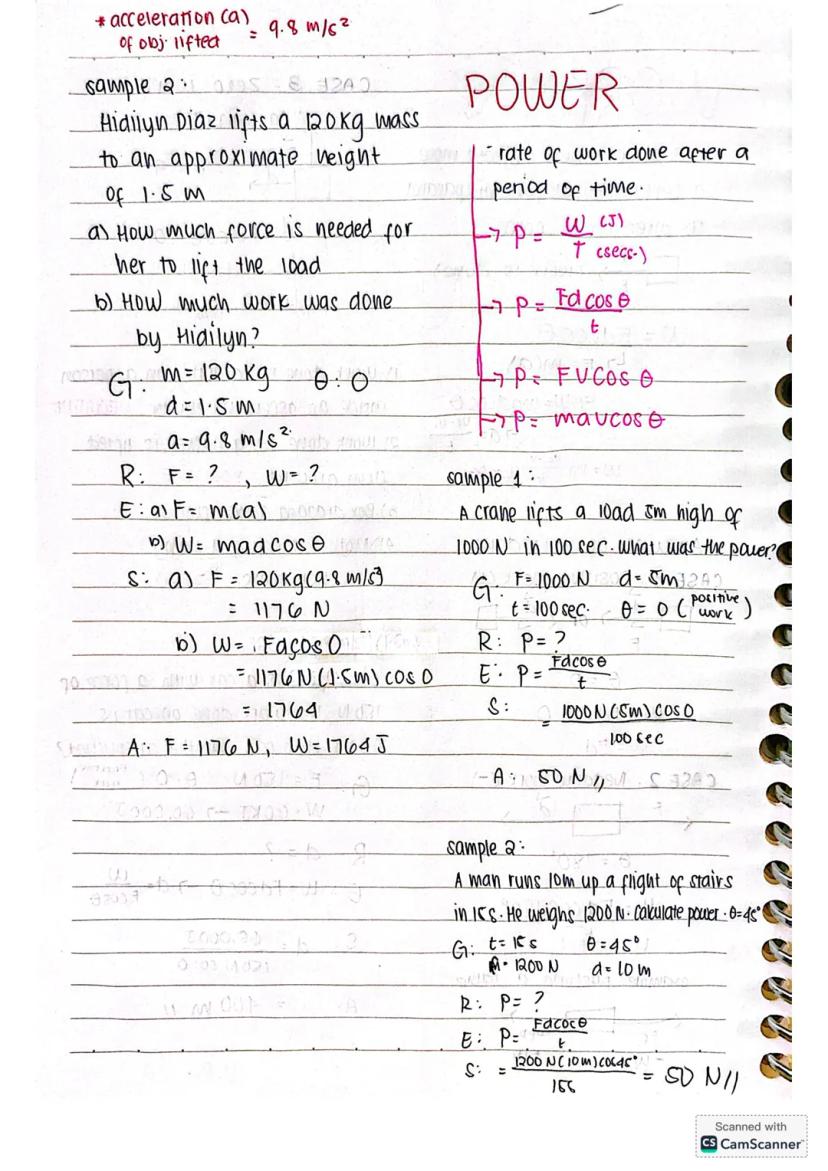 * acceleration (a)
of obj. lifted = 9.8 m/s²
sample 2:
Hidilyn Diaz lifts a 120Kg mass
to an approximate height
of 1.5 m
a) How much force is needed for
her to lift the load
b) How much work was done
by Hidilyn?
G: m = 120 Kg θ: 0
d = 1.5 m
a = 9.8 m/s²
R: F = ? , W = ?
E: a) F = m(a)
b) W = madcosθ
S: a) F = 120kg(9.8 m/s²)
= 1176 N
b) W = Fdcos0
= 1176 N (1.5m) cos 0
= 1764
A: F = 1176 N, W = 1764 J
POWER
- rate of work done after a
period of time.
→ P = W (J) / T (secs.)
→ P = Fdcosθ / t
→ P = FVcosθ
→ P = mavcosθ
sample 1:
A crane lifts a load 5m high of
1000 N in 100 sec. What was the power?
G: F = 1000 N d = 5m
t = 100 sec. θ = 0 (positive work)
R: P = ?
E: P = Fdcosθ / t
S: = 1000N(5m) cos0 / 100 sec
A: 50 N //
sample 2:
A man runs 10m up a flight of stairs
in 15s. He weighs 1200 N. Calculate power. θ=45°
G: t = 15 s θ = 45°
1200 N d = 10 m
R: P = ?
E: P = Fdcosθ / t
S: = 1200 N(10m)cos45° / 15s = 50 N//
Scanned with
CS CamScanner